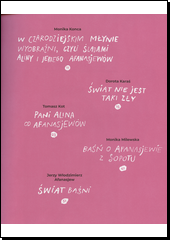 Monika Kanna
W CZARODZIEJSKIM MŁYNIE
WYOBRAŹNI, CZYLI ŚLADAMI
ALINY I JERZEGO AFANASJEWÓW
Dorota Karaś
ŚWIAT NIE JEST
TAKI ZŁY
Tomasz Kot
PANI ALINA
OD AFANASJEWÓW
Monika Milewska
BAŚŃ O AFANASJEWIE
Z SOPOTU
ŚWIAT BAŚNI